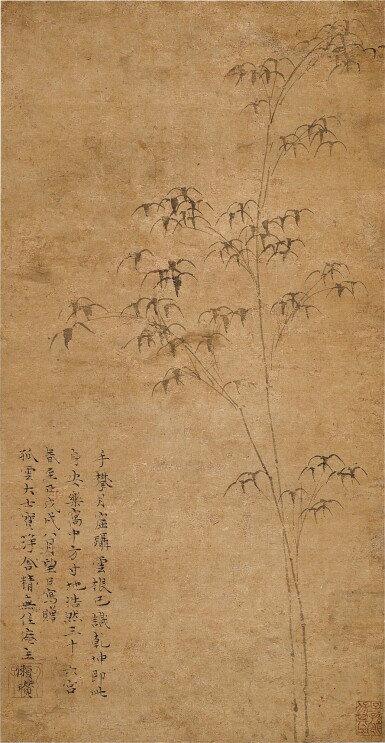 手攀月窟躡雲根已識乾坤即此
身安樂窩中方寸地浩然三十六宮
春至正戊戌八月望日寫贈
孤雲大士寶淨舍精無住庵主
懶瓚